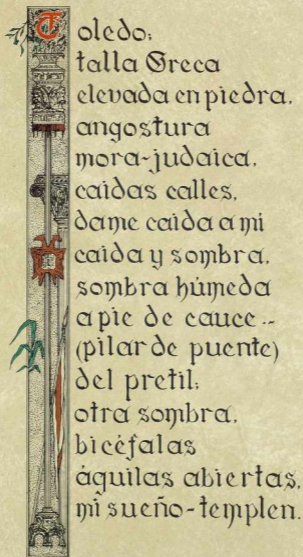 Toledo;
talla Greca
elevada en piedra,
angostura
mora-judaica,
caidas calles,
dame caida a mi
caida y sombra,
sombra húmeda
a pie de cauce --
(pilar de puente)
del pretil;
otra sombra,
bicéfalas
águilas abiertas,
mi sueño-templen.